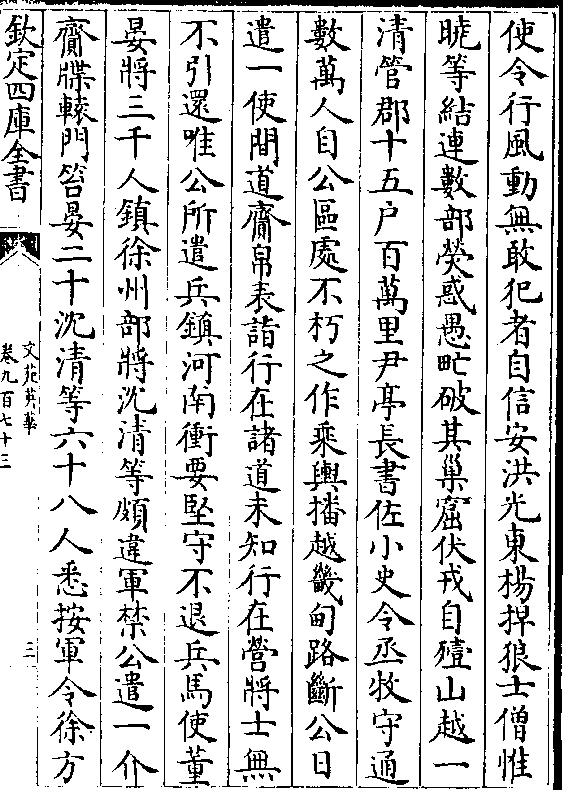 使令行風動無敢犯者自信安洪光東楊捍狼士僧惟
曉等結連數部熒惑愚甿破其巢窟伏戎自殪山越一
清管郡十五户百萬里尹亭長書佐小史令丞牧守通
數萬人自公區處不朽之作乘輿播越畿甸路斷公日
遣一使間道齎帛表詣行在諸道未知行在營將士無
不引還唯公所遣兵鎮河南衝要堅守不退兵馬使董
晏將三千人鎮徐州部將沈清等頗違軍禁公遣一介
齎牒轅門笞晏二十沈清等六十八人悉按軍令徐方
欽定四庫全書
文苑英華
卷九百七十三
三